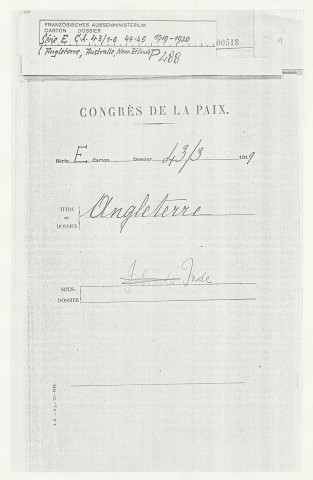 FRANZÖSISCHES AUSSENMINISTERIUM
CARTON DOSSIER
Série E C.A. 43/1-9 44-45 1919-1920
(Angleterre, Australie, Nouv. Zélande P 288
00518
CONGRÈS DE LA PAIX.
Série E Carton Dossier 43/3 1919
TITRE DU DOSSIER
Angleterre
Inde
SOUS-DOSSIER